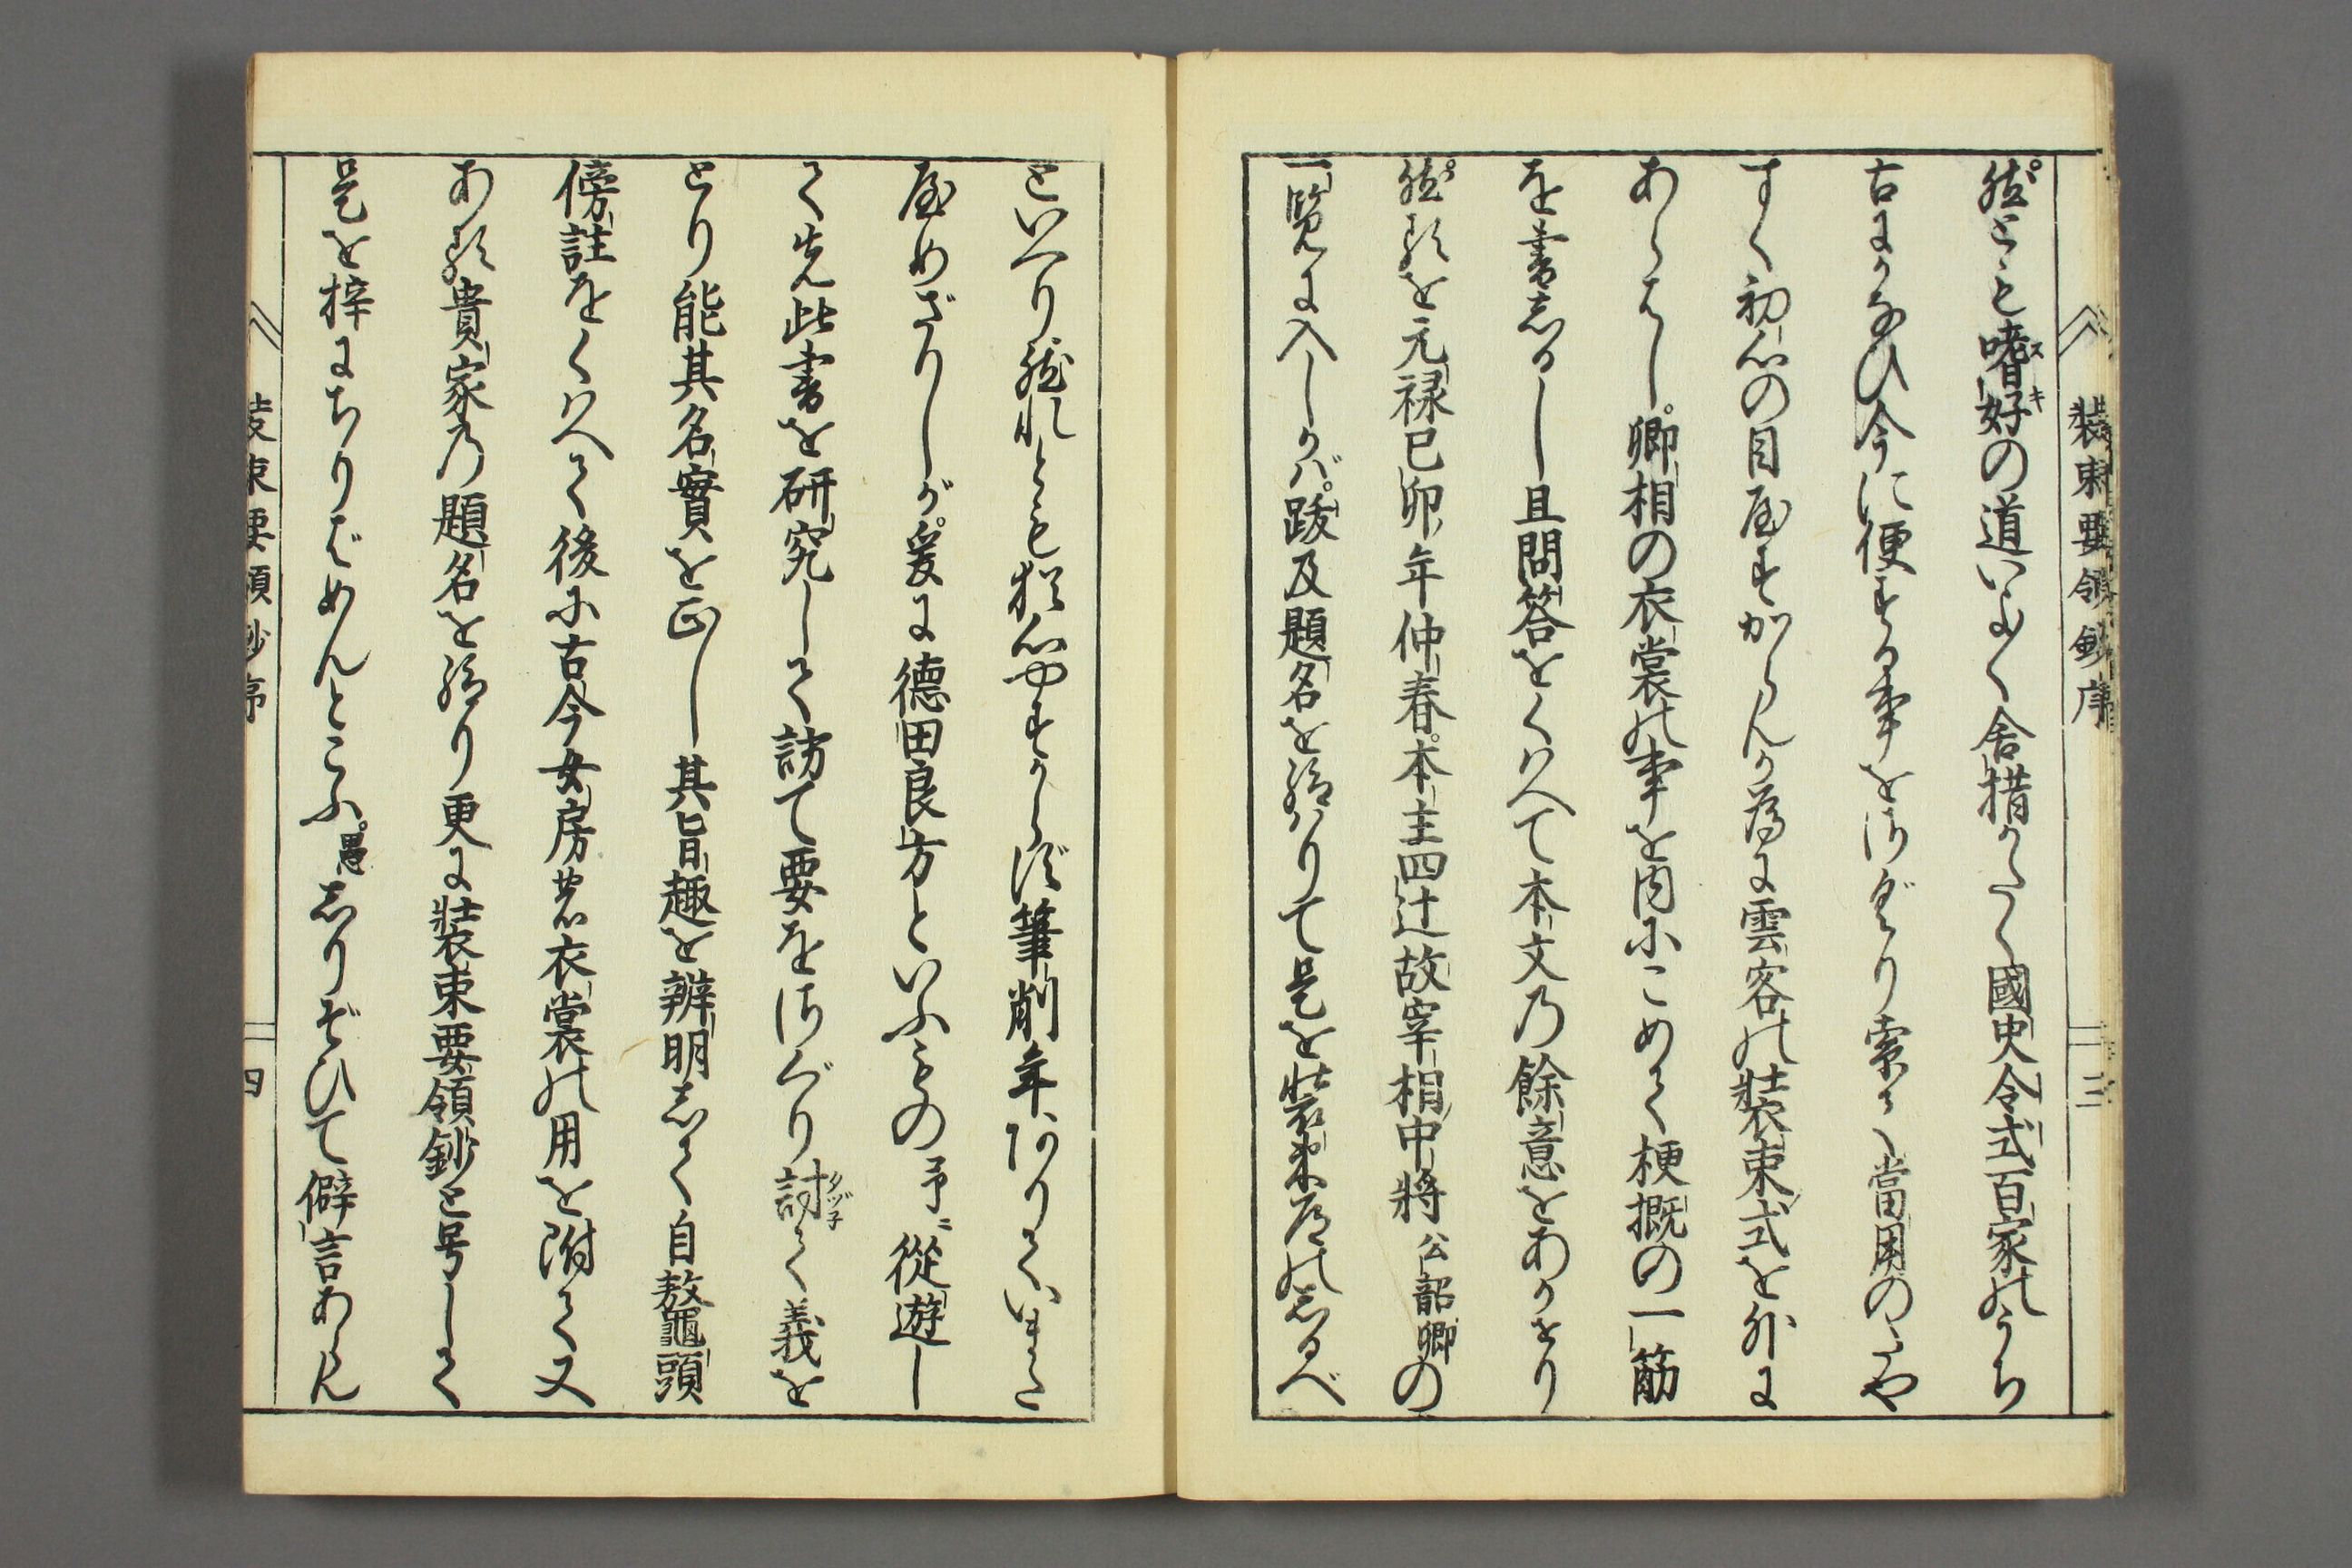 装束要領鈔序
三
然とも嗜好の道いなく舎措かたく國史令式百家のうち
スキ
古にかなひ今に便する事をけづり索て當用のや
すく初心の目やすからんか為に雲客の装束式を外に
あらはし卿相の衣裳の事を内にこめて梗概の一筋
を書しるし且問答をくはへて本文乃餘意をあかせり
然るを元禄己卯年仲春本主四辻故宰相中将公韶卿の
一覧に入しかば跋及題名を給はりて是を装束唐のしるべ
といへり然れとも猶心やすからず筆削年ありていまた
やめざりしが爰に徳田良方といふもの予ニ従遊し
て先此書を研究して訪て要をさぐり討て義を
タヅネ
とり能其名實を正し其旨趣を辨明して自鼇頭
傍註をくはへて後に古今女房の衣裳の用を附て又
ある貴家乃題名を給り更に装束要領鈔と号して
是を梓にちりばめんとこふ愚しりぞひて僻言あらん
装束要領鈔序
四